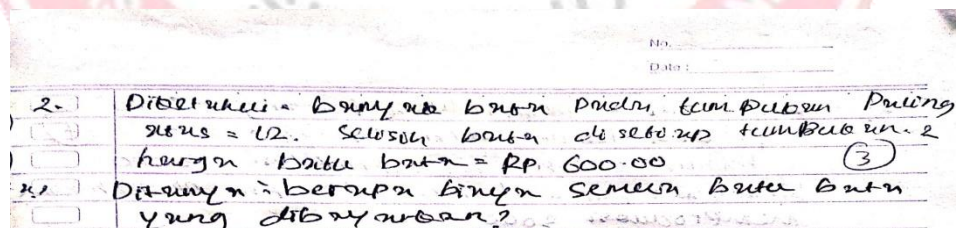 No.
Date :
2. Diketahui = banyak bata pada tumpukan Paling
atas = 12. selisih bata di setiap tumpukan. 2
harga batu bata = RP. 600.00 3
Ditanya = berapa biaya semua batu bata
yang dibayarkan?